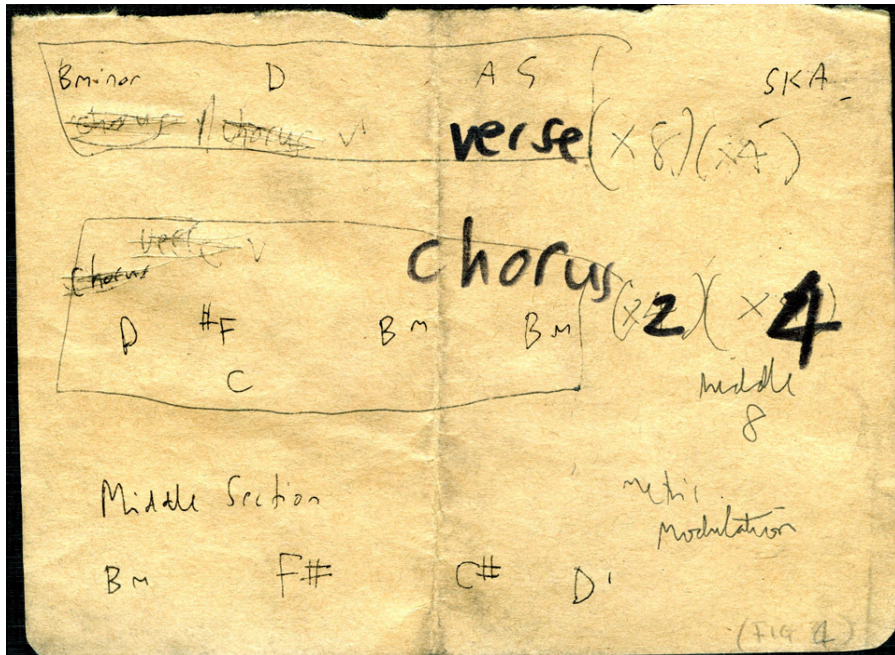 Bminor D A G SKA
chorus // chorus v verse (x 8) (x4)
verse v chorus
chorus
D #F Bm Bm (x 2) (x 4)
C middle
8
Middle Section metric
modulation
Bm F# C# D'
(FIG 4)